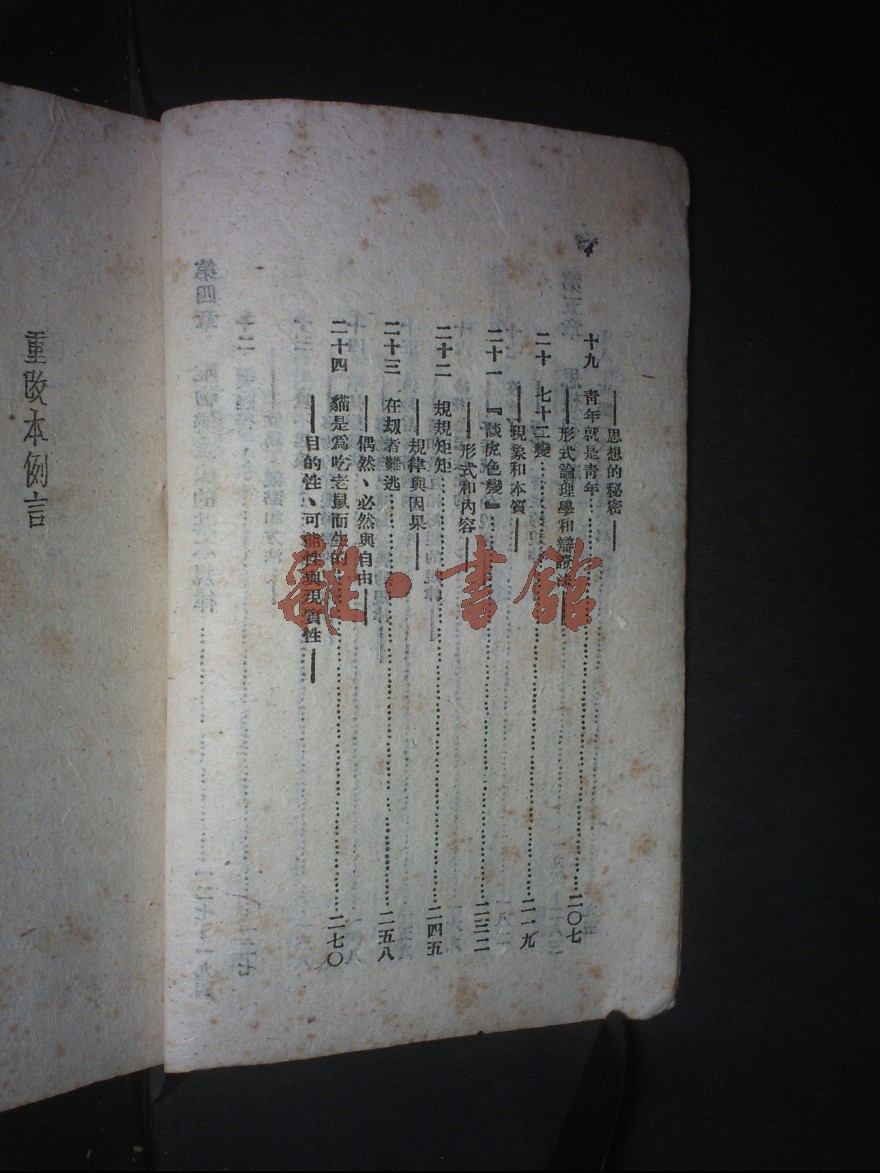 ——思想的秘密——
十九 靑年就是靑年……二〇七
——形式論理學和辯證法——
二十 七十二變……二一九
——現象和本質——
二十一 『談虎色變』……二三二
——形式和內容——
二十二 規規矩矩……二四五
——規律與因果——
二十三 在劫者難逃……二五八
——偶然、必然與自由——
二十四 貓是爲吃老鼠而生的……二七〇
——目的性、可能性與現實性——
重改本例言
雜·書館